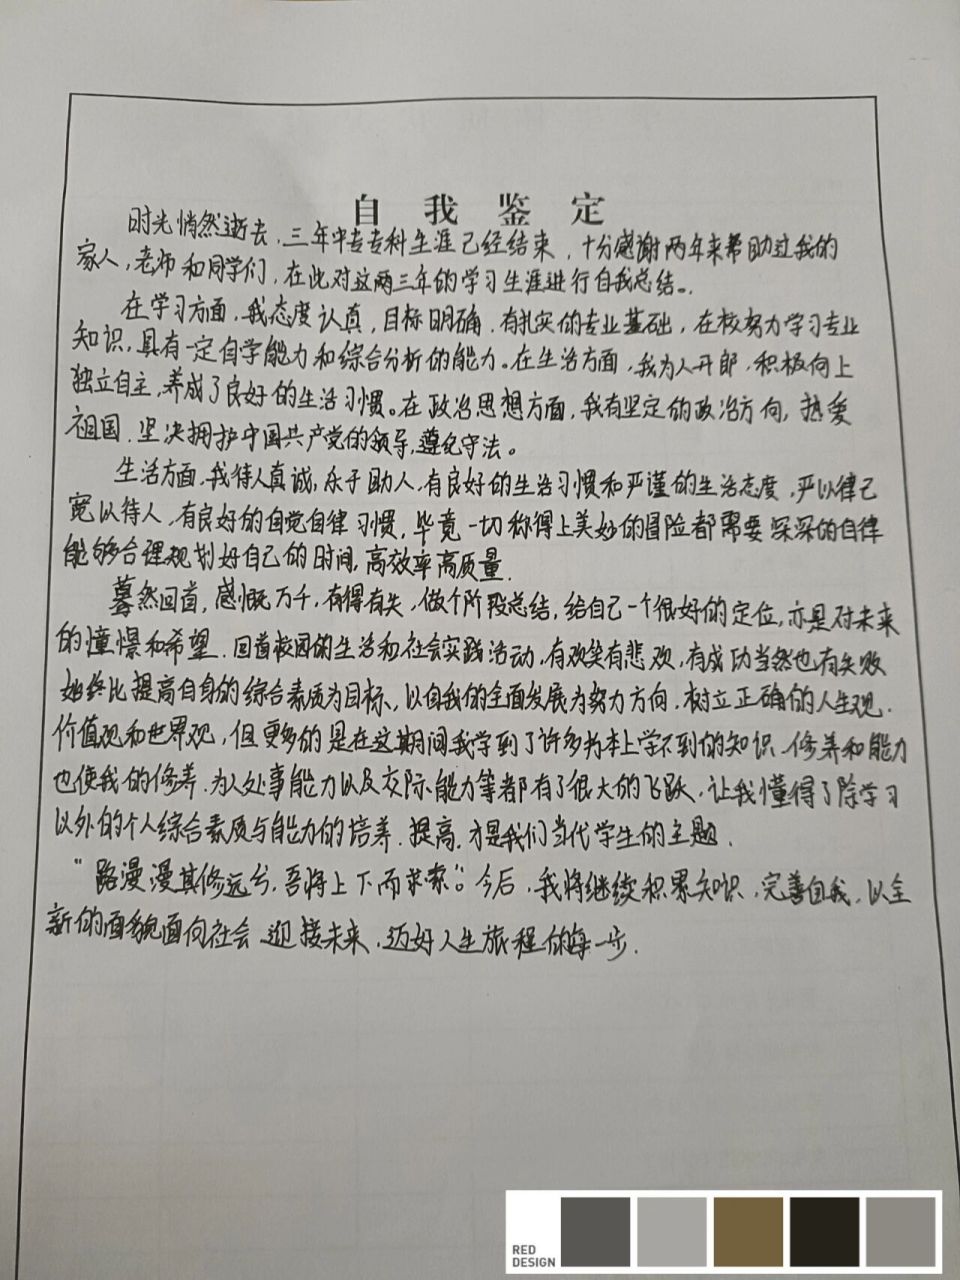 自我鉴定
时光悄然逝去，三年中专专科生涯已经结束，十分感谢两年来帮助过我的
家人，老师和同学们，在此对这两三年的学习生涯进行自我总结。
在学习方面，我态度认真，目标明确，有扎实的专业基础，在校努力学习专业
知识，具有一定自学能力和综合分析的能力。在生活方面，我为人开郎，积极向上
独立自主，养成了良好的生活习惯。在政治思想方面，我有坚定的政治方向，热爱
祖国，坚决拥护中国共产党的领导，遵纪守法。
生活方面，我待人真诚，乐于助人，有良好的生活习惯和严谨的生活态度，严以律己
宽以待人，有良好的自觉自律习惯，毕竟一切称得上美妙的冒险都需要深深的自律
能够合理规划好自己的时间，高效率高质量.
蓦然回首，感慨万千，有得有失，做个阶段总结，给自己一个很好的定位，亦是对未来
的憧憬和希望.回首校园的生活和社会实践活动，有欢笑有悲欢，有成功当然也有失败
始终比提高自身的综合素质为目标、以自我的全面发展为努力方向，树立正确的人生观、
价值观和世界观，但更多的是在这期间我学到了许多书本上学不到的知识、修养和能力
也使我的修养、为人处事能力以及交际能力等都有了很大的飞跃，让我懂得了除学习
以外的个人综合素质与能力的培养、提高，才是我们当代学生的主题.
"路漫漫其修远兮，吾将上下而求索"。今后，我将继续积累知识、完善自我，以全
新的面貌面向社会 迎接未来，迈好人生旅程的每一步.
RED
DESIGN